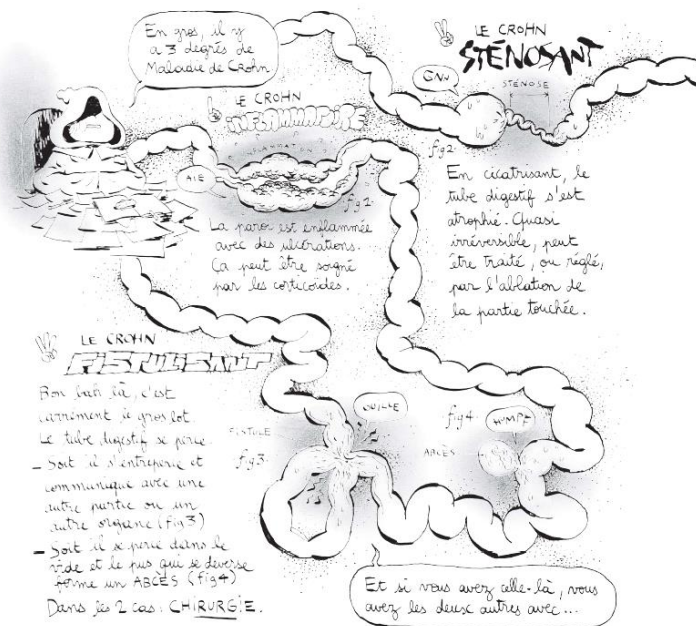 En gros, il y
a 3 degrés de
Maladie de Crohn
LE CROHN
INFLAMMATOIRE
INFLAMMATION
AIE
fig 2.
La paroi est enflammée
avec des ulcérations.
Ça peut être soigné
par les corticoïdes.
LE CROHN
STÉNOSANT
GNN
STÉNOSE
fig 2.
En cicatrisant, le
tube digestif s'est
atrophié. Quasi
irréversible, peut
être traité, ou réglé,
par l'ablation de
la partie touchée.
LE CROHN
FISTULISANT
Bon bah là, c'est
carrément le gros lot.
Le tube digestif se perce.
- Soit il s'entreperce et
communique avec une
autre partie ou un
autre organe (fig 3)
- Soit il se perce dans le
vide et le pus qui se déverse
forme un ABCÈS (fig 4)
Dans les 2 cas : CHIRURGIE.
FISTULE
fig 3.
OUILLE
fig 4.
HUMPF
ABCÈS
Et si vous avez celle-là, vous
avez les deux autres avec...